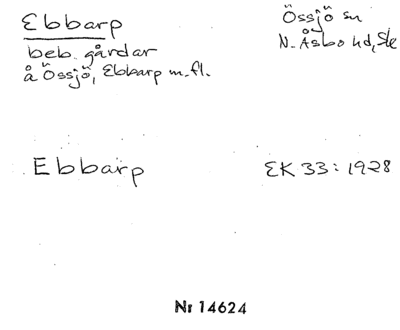 Ebbarp
beb. gårdar
å Össjö, Ebbarp m.fl.
Össjö sn
N. Åsbo hd, Ske
Ebbarp
EK 33: 1928
Nr 14624